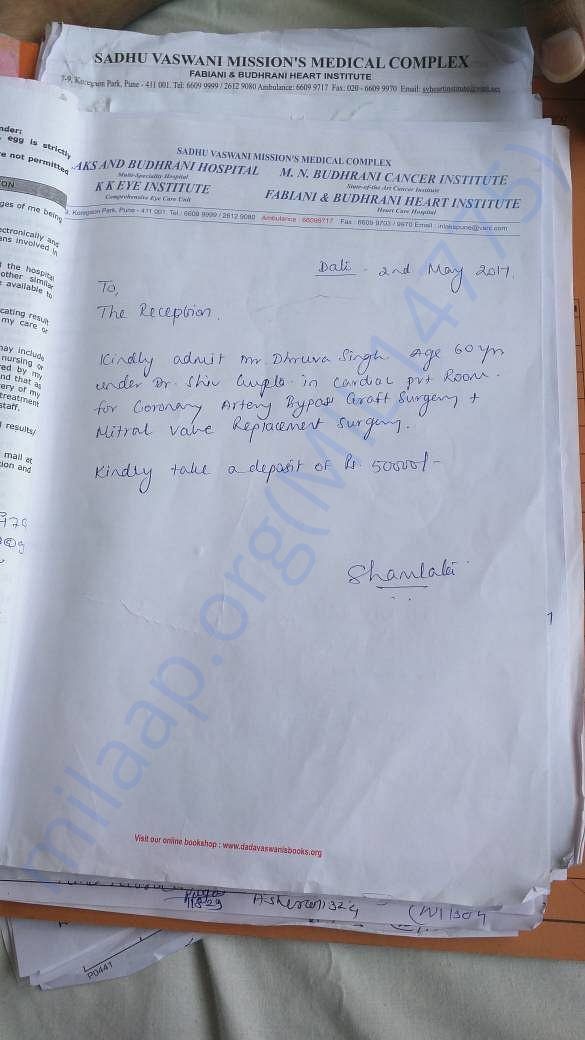 SADHU VASWANI MISSION'S MEDICAL COMPLEX
FABIANI & BUDHRANI HEART INSTITUTE
7-9, Koregaon Park, Pune - 411 001. Tel: 6609 9999 / 2612 9080 Ambulance: 6609 9717 Fax: 020 - 6609 9970 Email: svheartinstitute@
nder:
egg is strictly
e not permitted
ON
ges of me being
ectronically and
ans involved in
the hospital
other similar
available to
cating result
my care or
may include
nursing or
red by my
nd that as
very of my
treatment
staff.
results/
mail at
tion and
SADHU VASWANI MISSION'S MEDICAL COMPLEX
AKS AND BUDHRANI HOSPITAL
Multi-Speciality Hospital
M. N. BUDHRANI CANCER INSTITUTE
State-of-the Art Cancer Institute
K K EYE INSTITUTE
Comprehensive Eye Care Unit
FABIANI & BUDHRANI HEART INSTITUTE
Heart Care Hospital
Koregaon Park, Pune - 411 001 Tel : 6609 9999 / 2612 9080 Ambulance : 66099717 Fax : 6609 9703 / 9970 Email : inlakspune@vsnl.com
Date . 2nd May 2017.
To,
The Reception.
Kindly admit Mr. Dhruva Singh Age 60 yrs
under Dr. Shiv Gupta in Cardiac pvt Room.
for Coronary Artery Bypass Graft Surgery +
Mitral Valve Replacement Surgery.
Kindly take a deposit of Rs. 50000/-
Visit our online bookshop : www.dadavaswanisbooks.org
P0441
milaap.org(MIL14775)